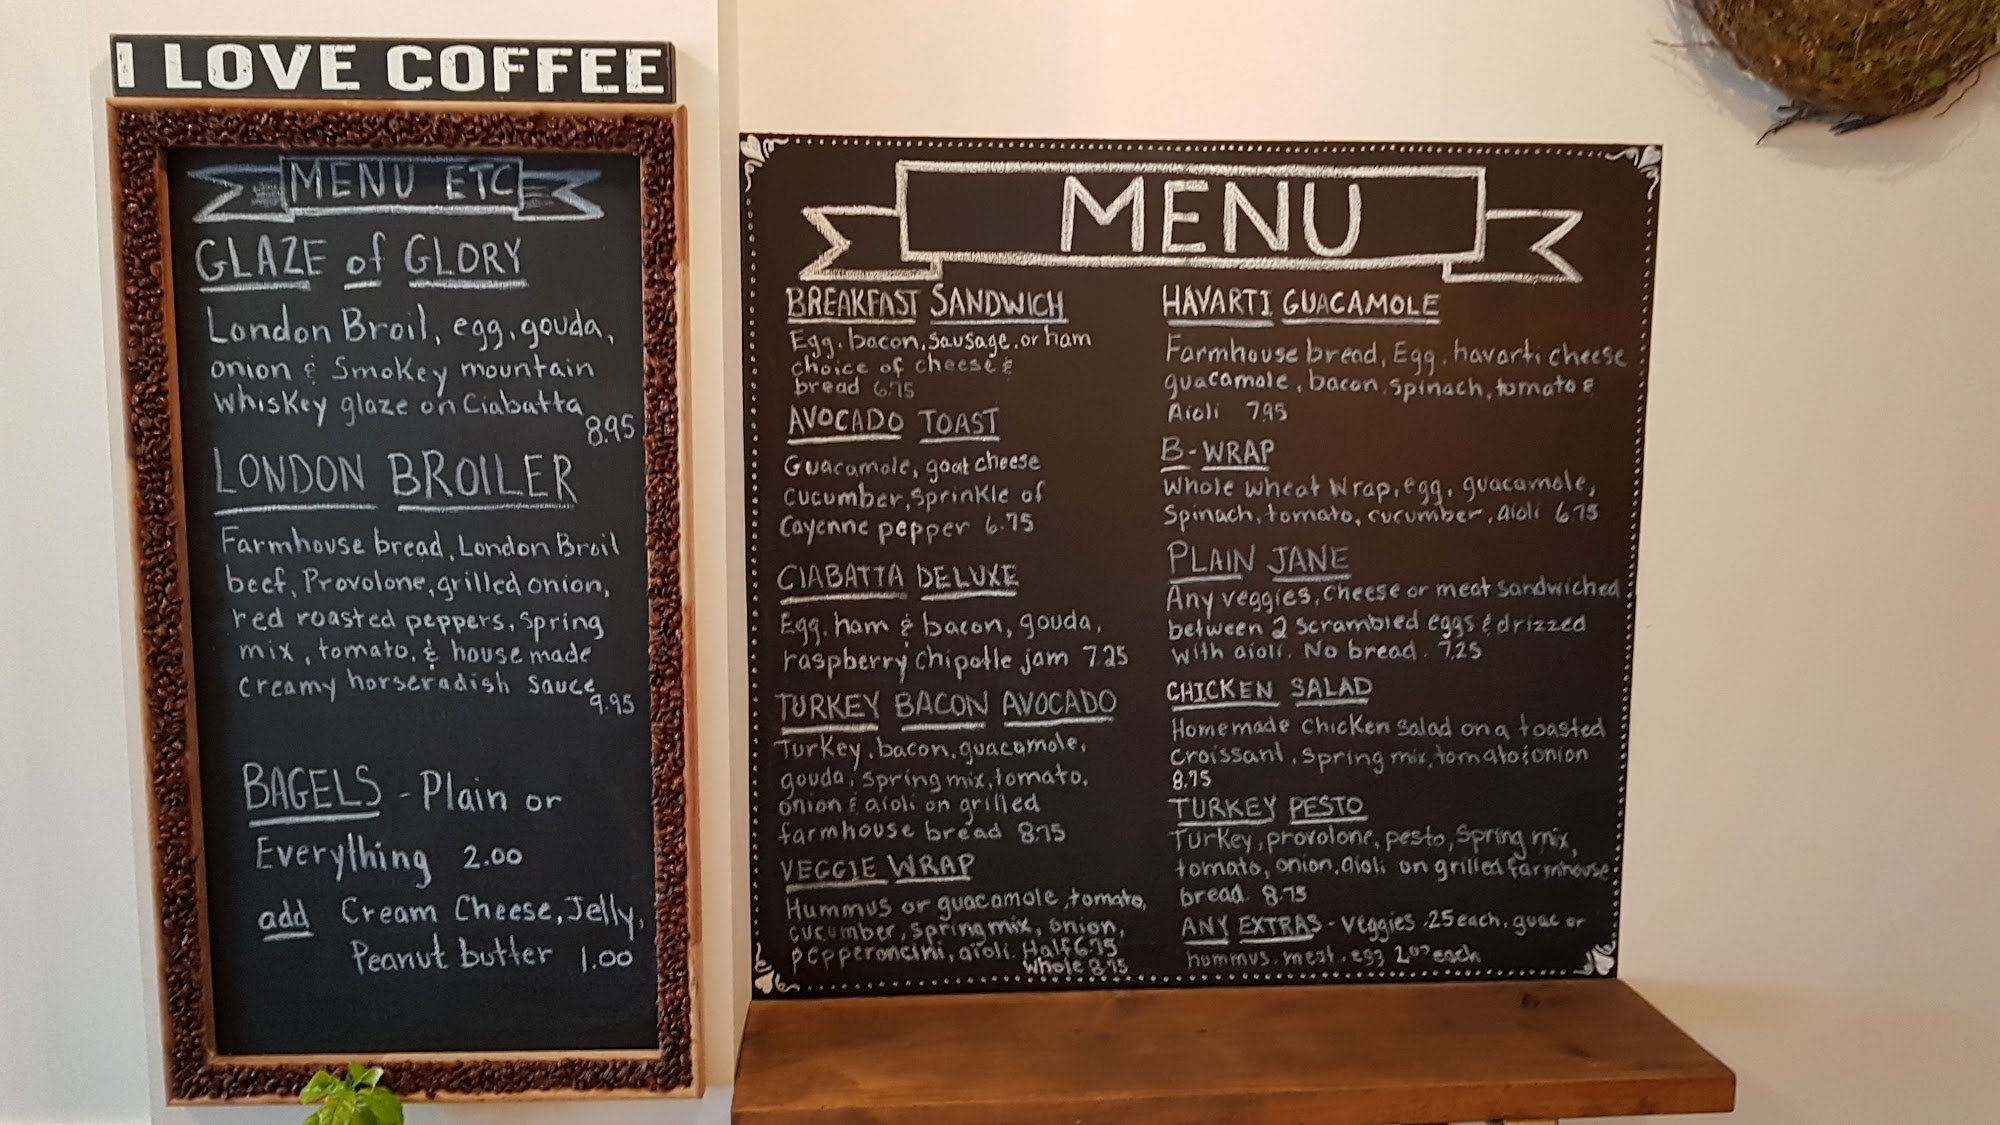 I LOVE COFFEE
MENU ETC
GLAZE of GLORY
London Broil, egg, gouda,
onion & Smokey mountain
whiskey glaze on Ciabatta
8.95
LONDON BROILER
Farmhouse bread, London Broil
beef, Provolone, grilled onion,
red roasted peppers, spring
mix, tomato, & house made
creamy horseradish sauce
9.95
BAGELS - Plain or
Everything 2.00
add Cream Cheese, Jelly,
Peanut butter 1.00
MENU
BREAKFAST SANDWICH
Egg, bacon, sausage, or ham
choice of cheese &
bread 6.75
AVOCADO TOAST
Guacamole, goat cheese
cucumber, sprinkle of
Cayenne pepper 6.75
CIABATTA DELUXE
Egg, ham & bacon, gouda,
raspberry chipotle jam 7.25
TURKEY BACON AVOCADO
Turkey, bacon, guacamole,
gouda, spring mix, tomato,
onion & aioli on grilled
farmhouse bread 8.75
VEGGIE WRAP
Hummus or guacamole, tomato,
cucumber, spring mix, onion,
pepperoncini, aioli. Half 6.75
Whole 8.75
HAVARTI GUACAMOLE
Farmhouse bread, Egg, havarti cheese
guacamole, bacon, spinach, tomato &
Aioli 7.95
B-WRAP
Whole wheat Wrap, egg, guacamole,
Spinach, tomato, cucumber, aioli 6.75
PLAIN JANE
Any veggies, cheese or meat sandwiched
between 2 scrambled eggs & drizzed
with aioli. No bread. 7.25
CHICKEN SALAD
Homemade chicken salad on a toasted
croissant, spring mix, tomato & onion
8.75
TURKEY PESTO
Turkey, provolone, pesto, spring mix,
tomato, onion, aioli on grilled farmhouse
bread. 8.75
ANY EXTRAS - veggies .25 each, guac or
hummus, meat, egg 2.00 each